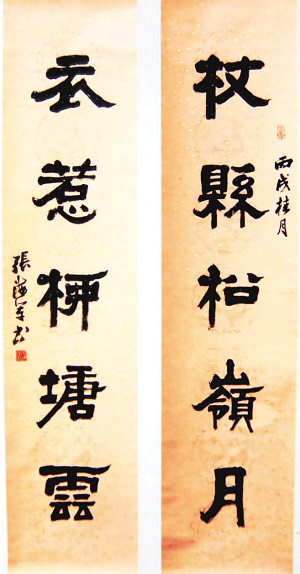 杖縣松嶺月
丙戌桂月
衣惹柳塘雲
張